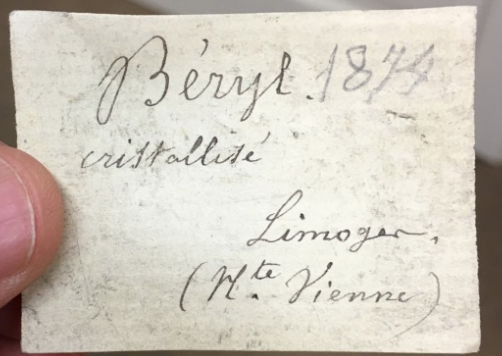 Béryl. 1874
cristallisé
Limoges.
(Hte. Vienne)